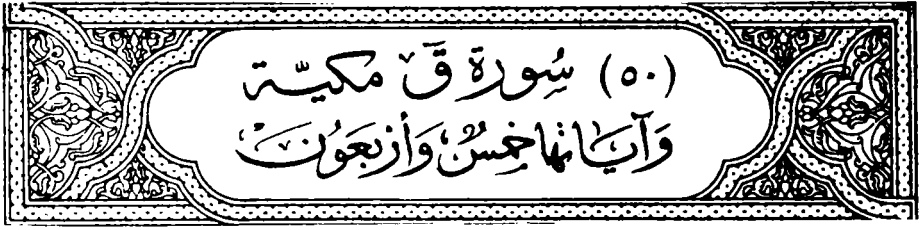 (٥٠) سُورَة قَ مكيّة
وَآيَاتها خمسٌ وَأربَعُونَ